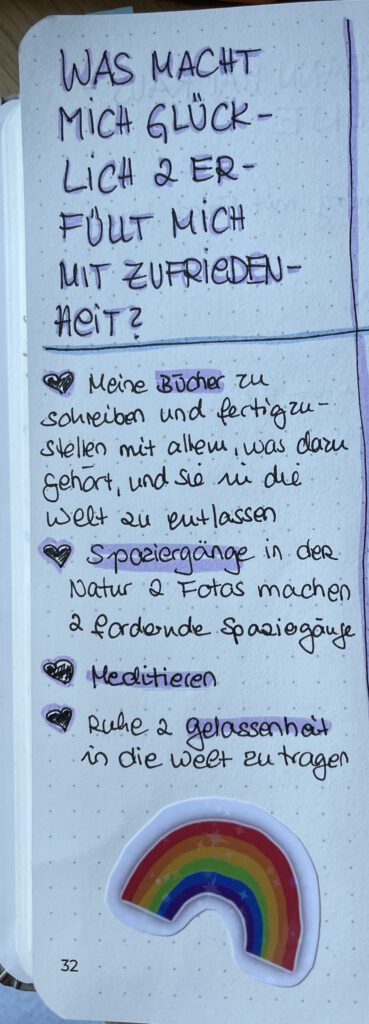 WAS MACHT
MICH GLÜCK-
LICH & ER-
FÜLLT MICH
MIT ZUFRIEDEN-
HEIT?
Meine Bücher zu
schreiben und fertigzu-
stellen mit allem, was dazu
gehört, und sie in die
Welt zu entlassen
Spaziergänge in der
Natur & Fotos machen
& fordernde Spaziergänge
Meditieren
Ruhe & Gelassenheit
in die Welt zu tragen
32